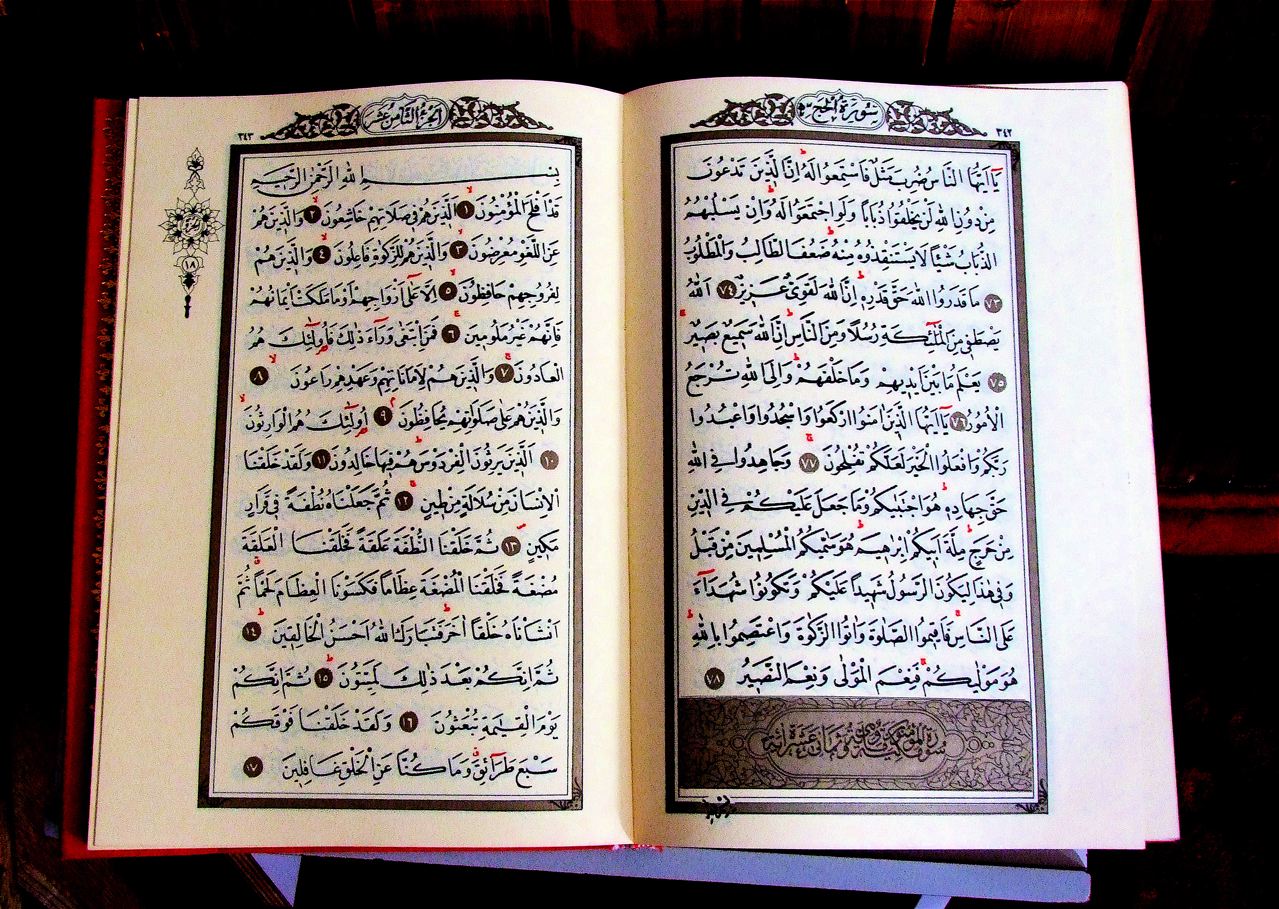 سورة الحج
٣٤٢
يَٓا اَيُّهَا النَّاسُ ضُرِبَ مَثَلٌ فَاسْتَمِعُوا لَهُ اِنَّ الَّذٖينَ تَدْعُونَ
مِنْ دُونِ اللّٰهِ لَنْ يَخْلُقُوا ذُبَاباً وَلَوِ اجْتَمَعُوا لَهُ وَاِنْ يَسْلُبْهُمُ
الذُّبَابُ شَيْـٔاً لَا يَسْتَنْقِذُوهُ مِنْهُ ضَعُفَ الطَّالِبُ وَالْمَطْلُوبُ
٧٣ مَا قَدَرُوا اللّٰهَ حَقَّ قَدْرِهٖ اِنَّ اللّٰهَ لَقَوِیٌّ عَزٖيزٌ ٧٤ اَللّٰهُ
يَصْطَفٖى مِنَ الْمَلٰٓئِكَةِ رُسُلاً وَمِنَ النَّاسِ اِنَّ اللّٰهَ سَمٖيعٌ بَصٖيرٌ
٧٥ يَعْلَمُ مَا بَيْنَ اَيْدٖيهِمْ وَمَا خَلْفَهُمْ وَاِلَى اللّٰهِ تُرْجَعُ
الْاُمُورُ ٧٦ يَٓا اَيُّهَا الَّذٖينَ اٰمَنُوا ارْكَعُوا وَاسْجُدُوا وَاعْبُدُوا
رَبَّكُمْ وَافْعَلُوا الْخَيْرَ لَعَلَّكُمْ تُفْلِحُونَ ٧٧ وَجَاهِدُوا فِى اللّٰهِ
حَقَّ جِهَادِهٖ هُوَ اجْتَبٰيكُمْ وَمَا جَعَلَ عَلَيْكُمْ فِى الدّٖينِ
مِنْ حَرَجٍ مِلَّةَ اَبٖيكُمْ اِبْرٰهٖيمَ هُوَ سَمّٰيكُمُ الْمُسْلِمٖينَ مِنْ قَبْلُ
وَفٖى هٰذَا لِيَكُونَ الرَّسُولُ شَهٖيداً عَلَيْكُمْ وَتَكُونُوا شُهَدَٓاءَ
عَلَى النَّاسِ فَاَقٖيمُوا الصَّلٰوةَ وَاٰتُوا الزَّكٰوةَ وَاعْتَصِمُوا بِاللّٰهِ
هُوَ مَوْلٰيكُمْ فَنِعْمَ الْمَوْلٰى وَنِعْمَ النَّصٖيرُ ٧٨
الجزء الثامن عشر
٣٤٣
بِسْمِ اللّٰهِ الرَّحْمٰنِ الرَّحٖيمِ
قَدْ اَفْلَحَ الْمُؤْمِنُونَ ١ اَلَّذٖينَ هُمْ فٖى صَلَاتِهِمْ خَاشِعُونَ ٢ وَالَّذٖينَ هُمْ
عَنِ اللَّغْوِ مُعْرِضُونَ ٣ وَالَّذٖينَ هُمْ لِلزَّكٰوةِ فَاعِلُونَ ٤ وَالَّذٖينَ هُمْ
لِفُرُوجِهِمْ حَافِظُونَ ٥ اِلَّا عَلٰٓى اَزْوَاجِهِمْ اَوْ مَا مَلَكَتْ اَيْمَانُهُمْ
فَاِنَّهُمْ غَيْرُ مَلُومٖينَ ٦ فَمَنِ ابْتَغٰى وَرَٓاءَ ذٰلِكَ فَاُولٰٓئِكَ هُمُ
الْعَادُونَ ٧ وَالَّذٖينَ هُمْ لِاَمَانَاتِهِمْ وَعَهْدِهِمْ رَاعُونَ ٨
وَالَّذٖينَ هُمْ عَلٰى صَلَوَاتِهِمْ يُحَافِظُونَ ٩ اُولٰٓئِكَ هُمُ الْوَارِثُونَ
١٠ اَلَّذٖينَ يَرِثُونَ الْفِرْدَوْسَ هُمْ فٖيهَا خَالِدُونَ ١١ وَلَقَدْ خَلَقْنَا
الْاِنْسَانَ مِنْ سُلَالَةٍ مِنْ طٖينٍ ١٢ ثُمَّ جَعَلْنَاهُ نُطْفَةً فٖى قَرَارٍ
مَكٖينٍ ١٣ ثُمَّ خَلَقْنَا النُّطْفَةَ عَلَقَةً فَخَلَقْنَا الْعَلَقَةَ
مُضْغَةً فَخَلَقْنَا الْمُضْغَةَ عِظَاماً فَكَسَوْنَا الْعِظَامَ لَحْماً ثُمَّ
اَنْشَاْنَاهُ خَلْقاً اٰخَرَ فَتَبَارَكَ اللّٰهُ اَحْسَنُ الْخَالِقٖينَ ١٤
ثُمَّ اِنَّكُمْ بَعْدَ ذٰلِكَ لَمَيِّتُونَ ١٥ ثُمَّ اِنَّكُمْ
يَوْمَ الْقِيٰمَةِ تُبْعَثُونَ ١٦ وَلَقَدْ خَلَقْنَا فَوْقَكُمْ
سَبْعَ طَرَٓائِقَ وَمَا كُنَّا عَنِ الْخَلْقِ غَافِلٖينَ ١٧
١٨